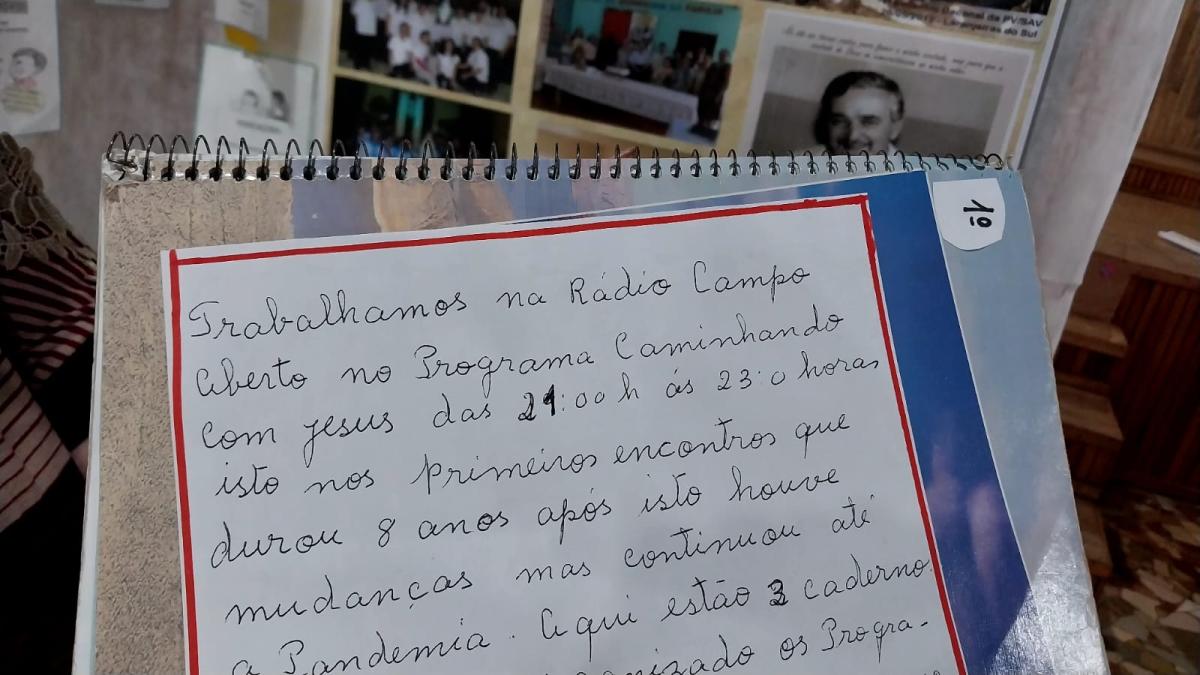 Nacional da PV/SAV
Laranjeiras do Sul
10
Trabalhamos na Rádio Campo
aberto no Programa Caminhando
com Jesus das 21:00 h ás 23:0 horas
isto nos primeiros encontros que
durou 8 anos após isto houve
mudanças mas continuou até
a Pandemia. Aqui estão 3 caderno
os Progra-